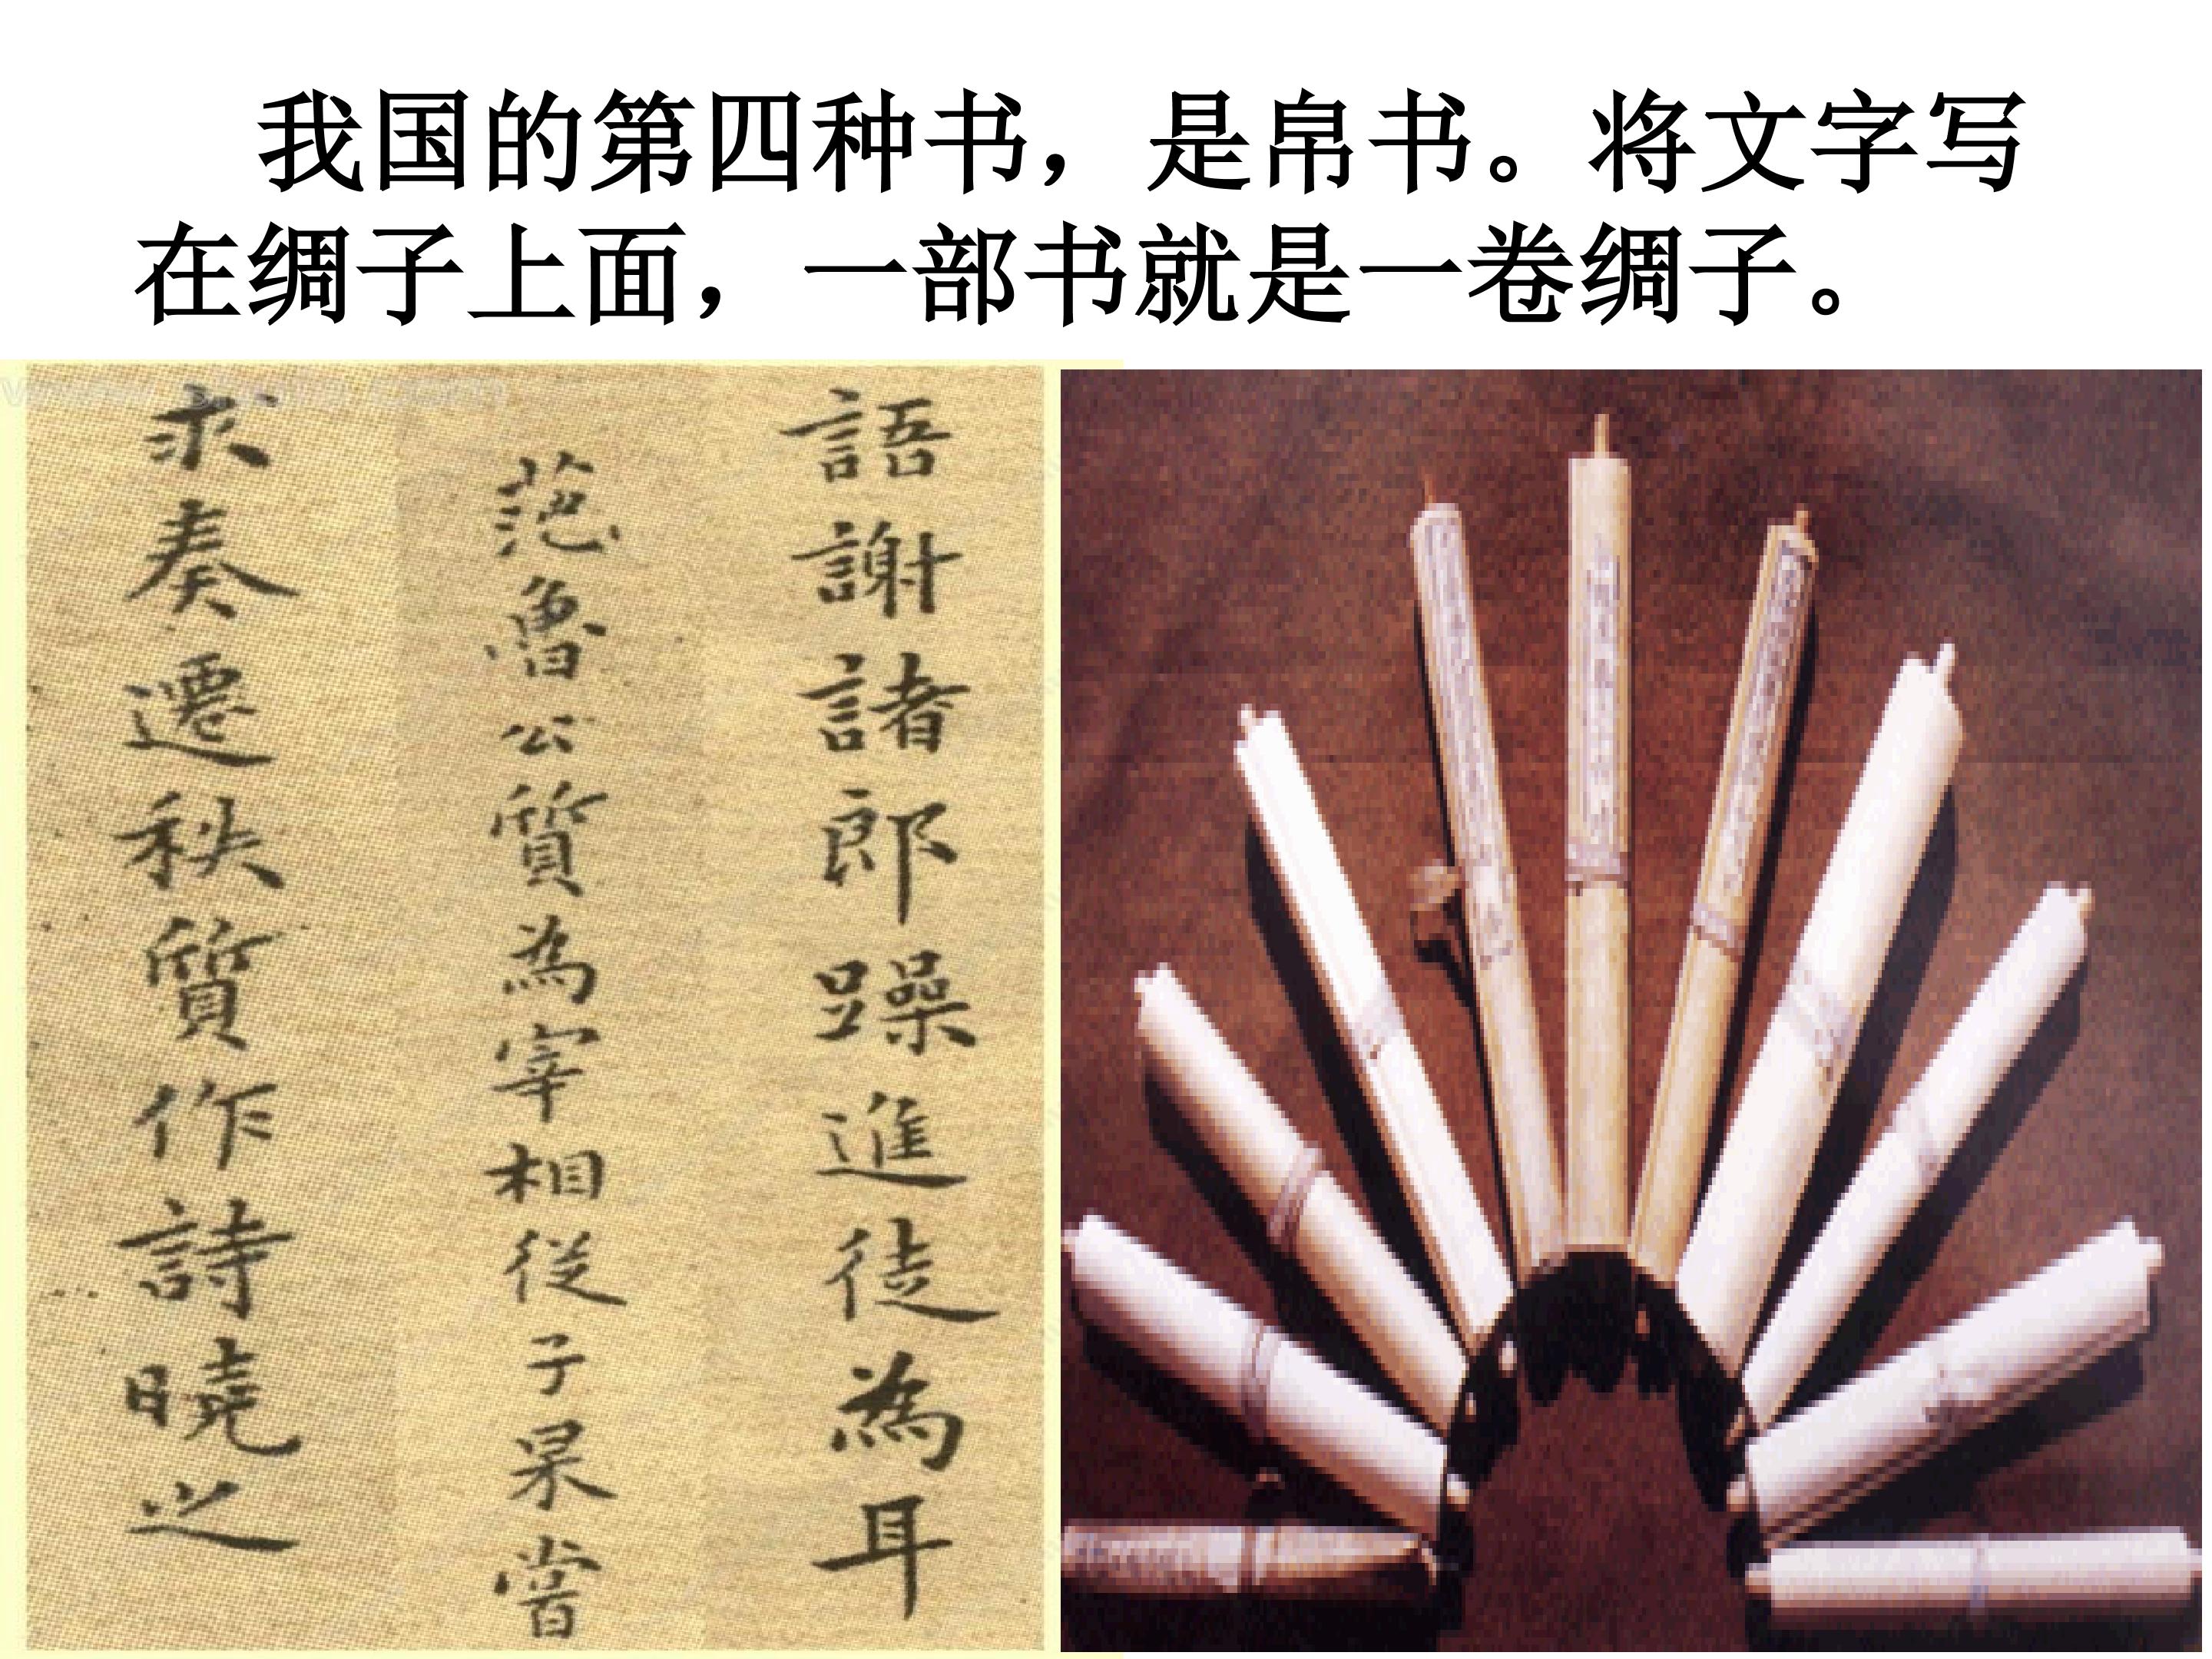 我国的第四种书，是帛书。将文字写
在绸子上面，一部书就是一卷绸子。
語謝諸郎躁進徒為耳
范魯公質為宰相從子杲嘗
求奏遷秩質作詩曉之